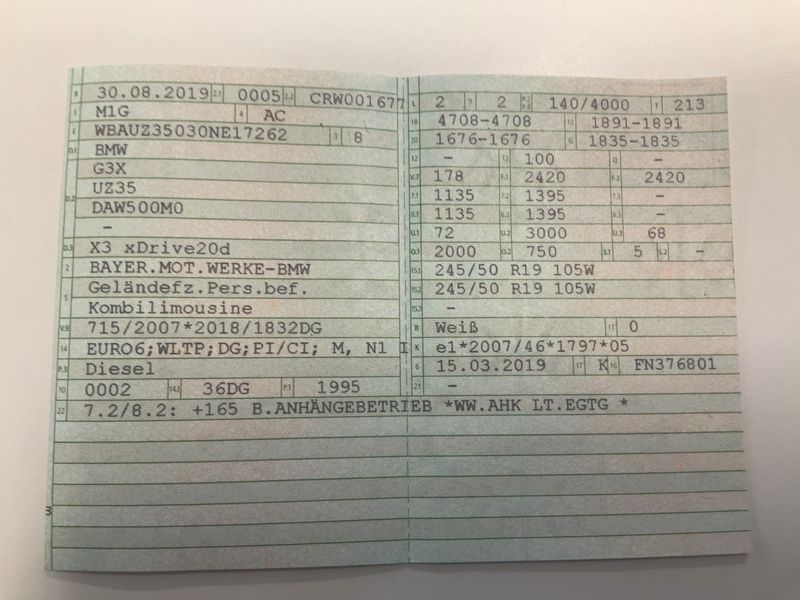 B 30.08.2019 2.1 0005 2.2 CRW001677
J M1G 4 AC
E WBAUZ35030NE17262 3 8
D.1 BMW
G3X
D.2 UZ35
DAW500M0
–
D.3 X3 xDrive20d
2 BAYER.MOT.WERKE-BMW
5 Geländefz.Pers.bef.
Kombilimousine
V.9 715/2007*2018/1832DG
14 EURO6;WLTP;DG;PI/CI; M, N1 I
P.3 Diesel
10 0002 14.1 36DG P.1 1995
22 7.2/8.2: +165 B.ANHÄNGEBETRIEB *WW.AHK LT.EGTG *
3
L 2 9 2 P.2 P.4 140/4000 T 213
18 4708-4708 19 1891-1891
20 1676-1676 G 1835-1835
12 – 13 100 Q –
V.7 178 F.1 2420 F.2 2420
7.1 1135 7.2 1395 7.3 –
8.1 1135 8.2 1395 8.3 –
U.1 72 U.2 3000 U.3 68
O.1 2000 O.2 750 S.1 5 S.2 –
15.1 245/50 R19 105W
15.2 245/50 R19 105W
15.3 –
R Weiß 11 0
K e1*2007/46*1797*05
6 15.03.2019 17 K 16 FN376801
21 –